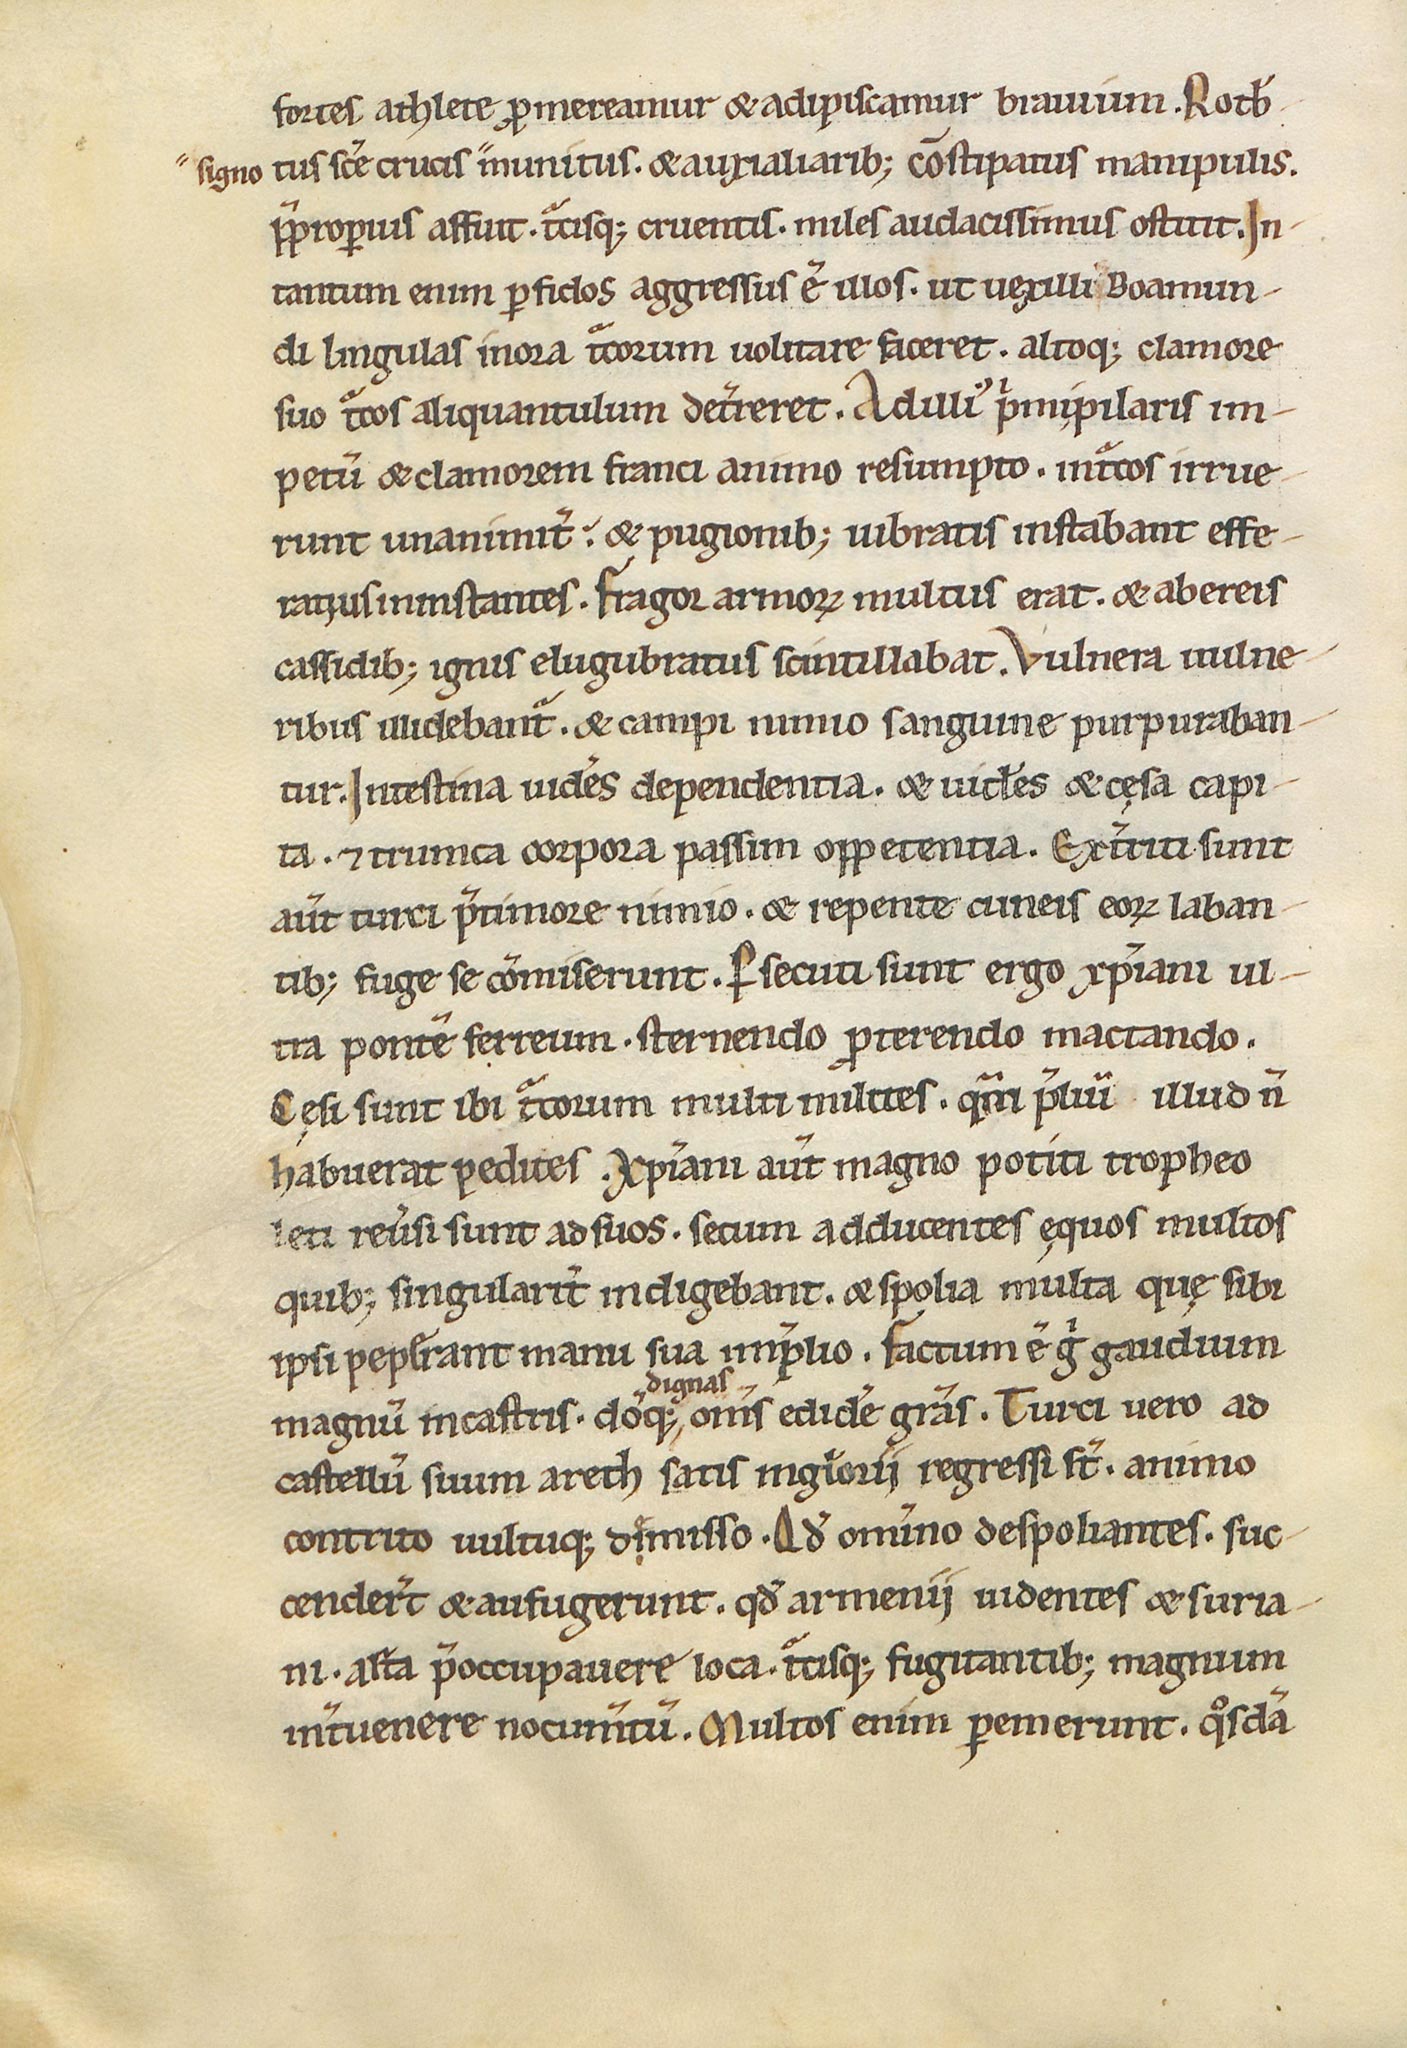 fortes athlete ꝓmereamur & adipiscamur brauium. Rotb̄
signo tus sc̄e crucis munitus. & auxialiarib; cōstipatus manipulis.
p̄ꝓperius affuit. tᵃcisq; cruentis. miles audacissimus ostitit. In-
tantum enim ꝑfidos aggressus ē illos. ut uexilli Boamun-
di lingulas inora tᵃcorum uolitare faceret. altoq; clamore
suo tᵃcos aliquantulum det̄reret. Ad illiꝰ pⁱmipilaris im-
petū & clamorem franci animo resumpto. intᵃcos irrue-
runt unanimit̄. & pugionib; uibratis instabant effe-
ratius ininstantes. Fragor armoꝝ multus erat. & abereis
cassidib; ignis elugubratus scintillabat. Vulnera uulne-
ribus illidebantᵃ. & campi nimio sanguine purpuraban-
tur. Intestina uidēs dependentia. & uidēs & cęsa capi-
ta. ⁊ trunca corpora passim oppetentia. Ext̄riti sunt
aūt turci p̄timore nimio. & repente cuneis eoꝝ laban-
tib; fuge se cōmiserunt. Ꝑsecuti sunt ergo xp̄iani ul-
tra pontē ferreum. sternendo ꝓterendo mactando.
Cęsi sunt ibi tᵃcorum multi milites. qm̄ p̄liū illud n̄
habuerat pedites. Xp̄iani aūt magno potiti tropheo
leti reūsi sunt ad suos. secum adducentes ęquos multos
quib; singularit̄ indigebant. & spolia multa quę sibi
ipsi pep̄erant manu sua inp̄lio. Factum ē gⁱ gaudium
dignas
magnū incastris. dōq; om̄s edidē grās. Turci vero ad
castellū suum areth satis inglorii regressi st̄. animo
contrito uultuq; dimisso. Qd̄ omīno despoliantes. suc-
cender̄t & aufugerunt. qd̄ armenii uidentes & suria-
ni. arta p̄occupauere loca. tᵃcisq; fugitantib; magnum
int̄uenere nocum̄tū. Multos enim ꝑemerunt. qᵒsdā